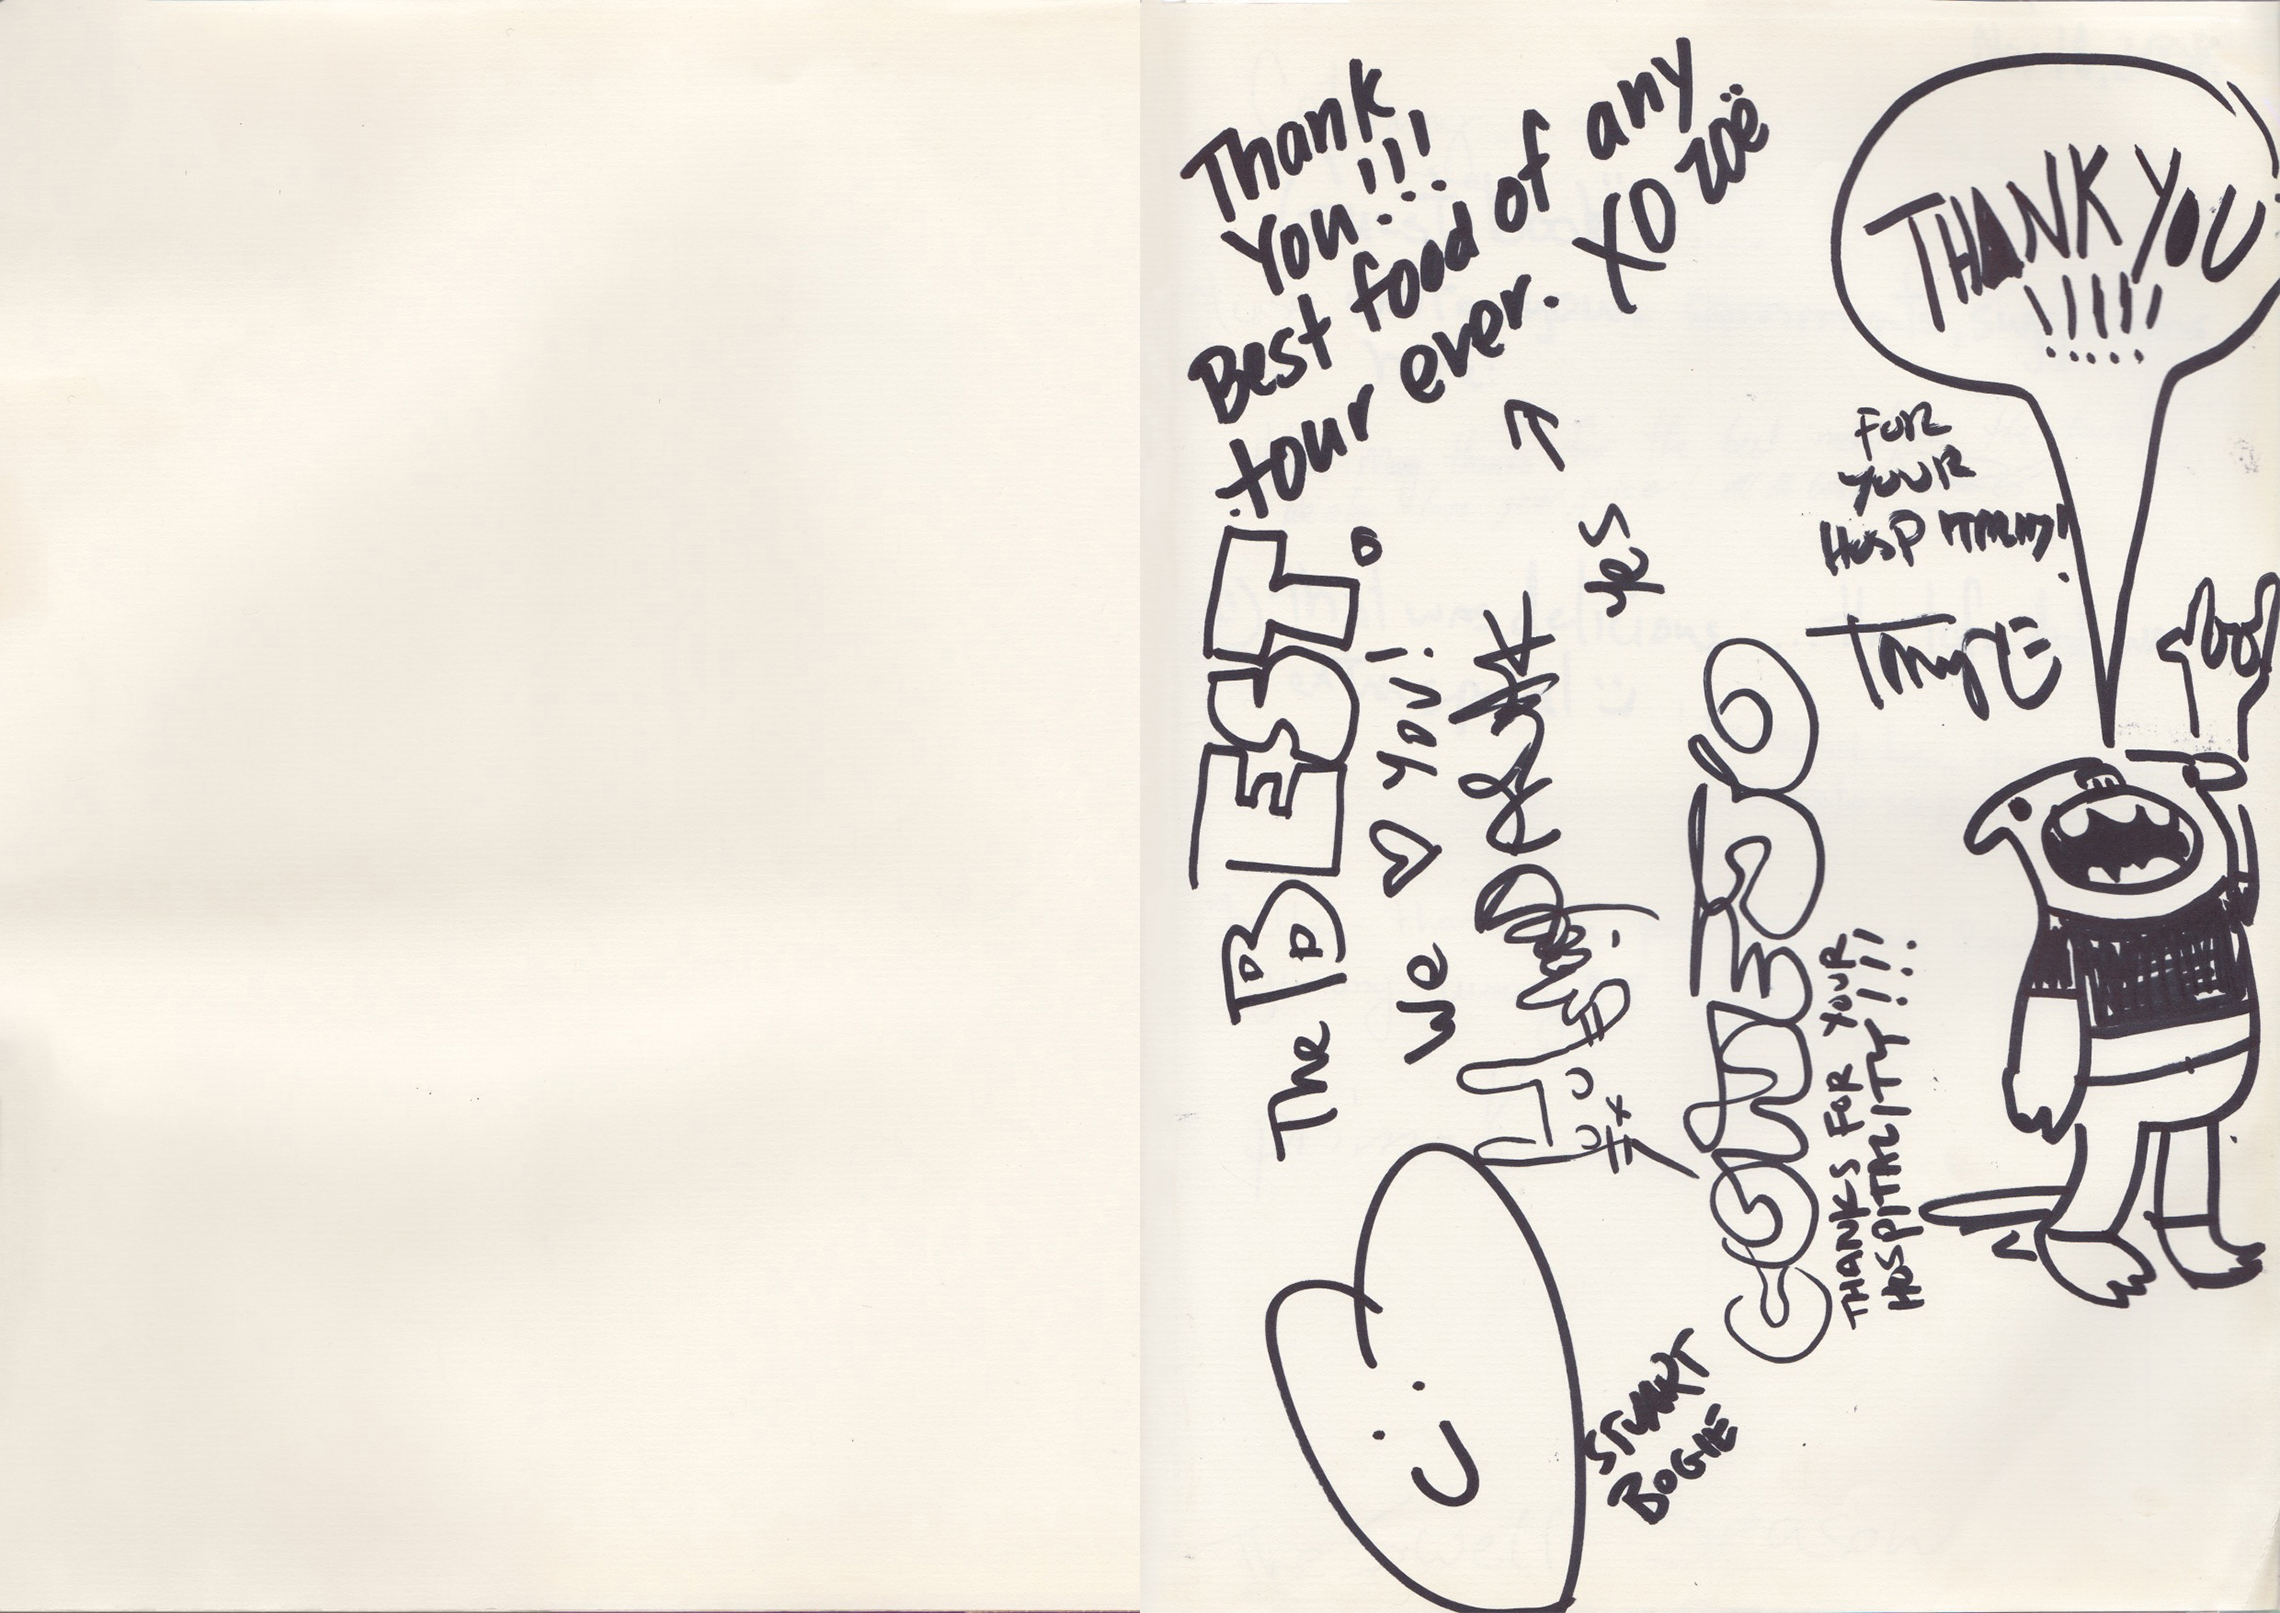 Thank
You!!!
Best food of any
tour ever. XO Zoë
↑
yes
The BEST.
We ♡ YOU!
STUART
BOGIE
THANKS FOR YOUR
HOSPITALITY!!!
THANK YOU
!!!!!
FOR
YOUR
HOSPITALITY!